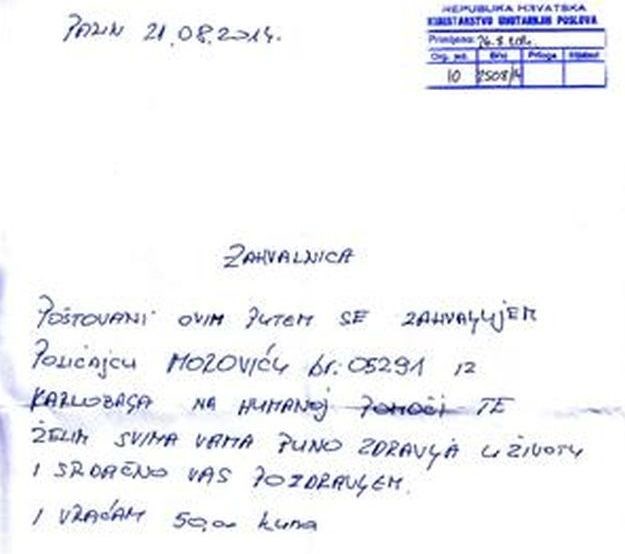 PAZIN 21.08.2014.
REPUBLIKA HRVATSKA
MINISTARSTVO UNUTARNJIH POSLOVA
Primljeno: 26.8.2014.
Org. jed. Broj Priloga Vrijednost
10 2508/14
ZAHVALNICA
POŠTOVANI OVIM PUTEM SE ZAHVALJUJEM
POLICAJCU MOZOVIĆU br. 05291 IZ
KARLOBAGA NA HUMANOJ POMOĆI TE
ŽELIM SVIMA VAMA PUNO ZDRAVLJA U ŽIVOTU
I SRDAČNO VAS POZDRAVLJEM.
I VRAĆAM 50,00 kuna